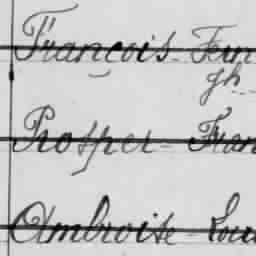 François - Fern
gh
Prosper - Fran
Ambroise - Lou